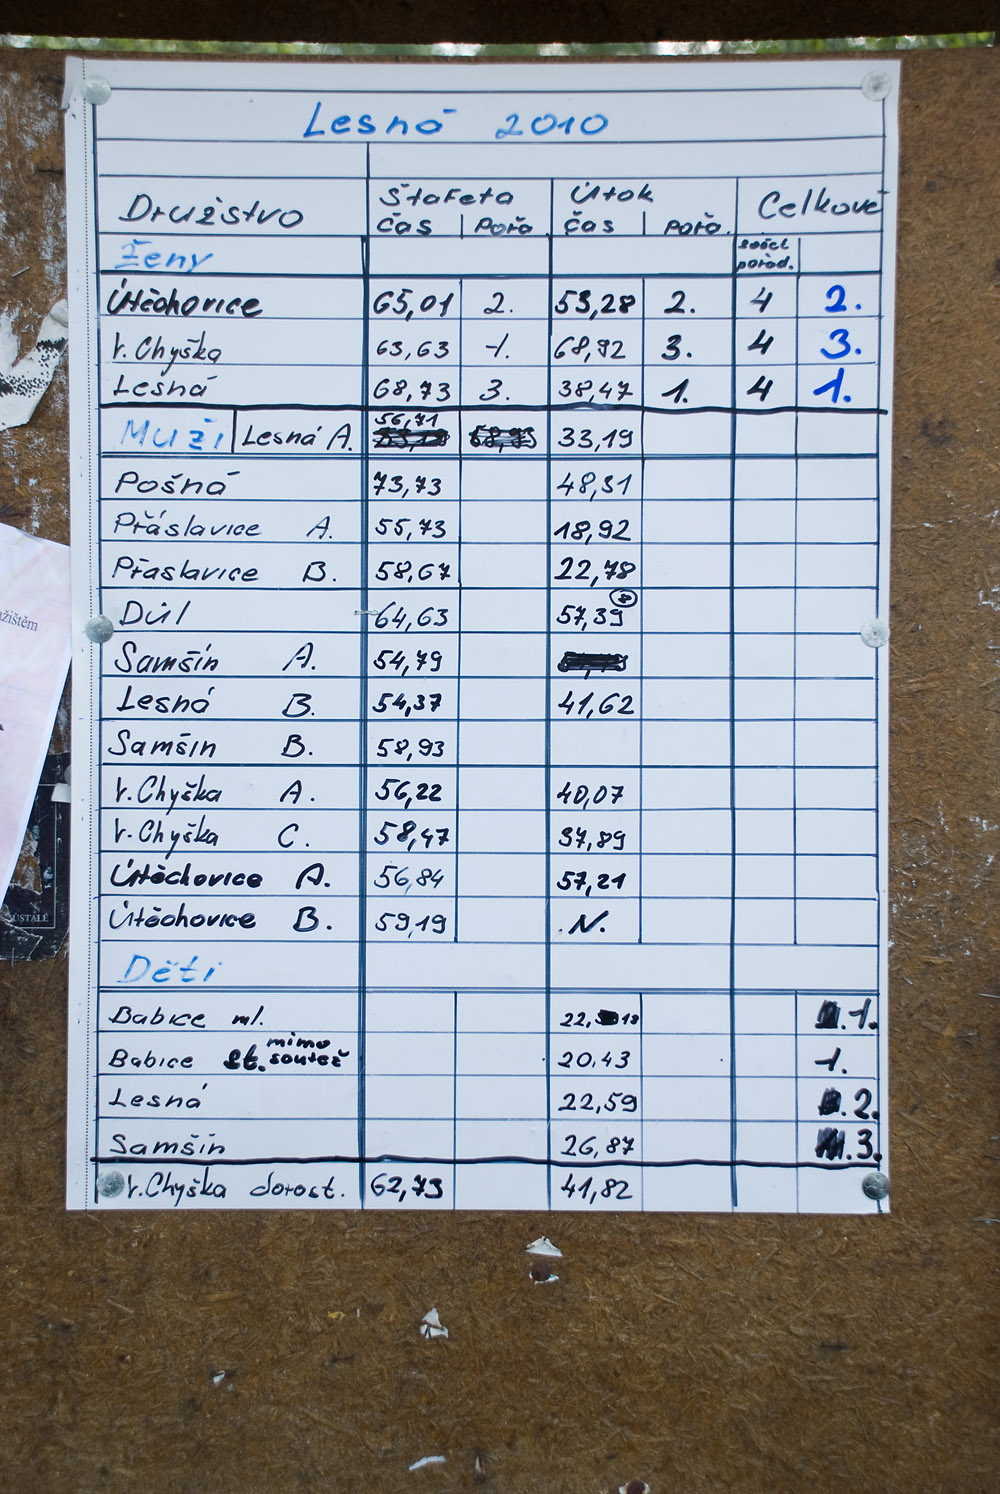 Lesná 2010
Družstvo Štafeta Útok Celkově
čas Pořa. čas Pořa. součt pořad.
Ženy
Útěchovice 65,01 2. 53,28 2. 4 2.
V. Chyška 63,63 1. 68,92 3. 4 3.
Lesná 68,73 3. 38,47 1. 4 1.
56,71
Muži Lesná A. 33,19
Pošná 73,73 48,31
Přáslavice A. 55,73 18,92
Přaslavice B. 58,67 22,78
Důl 64,63 57,39
Samšín A. 54,79
Lesná B. 54,37 41,62
Samšín B. 58,93
V. Chyška A. 56,22 40,07
V. Chyška C. 58,47 37,89
Útěchovice A. 56,84 57,21
Útěchovice B. 59,19 N.
Děti
Babice ml. 22,18 1.
Babice st. mimo soutěž 20,43 1.
Lesná 22,59 2.
Samšín 26,87 3.
V. Chyška dorost. 62,73 41,82
ažištěm
SUSTALÉ